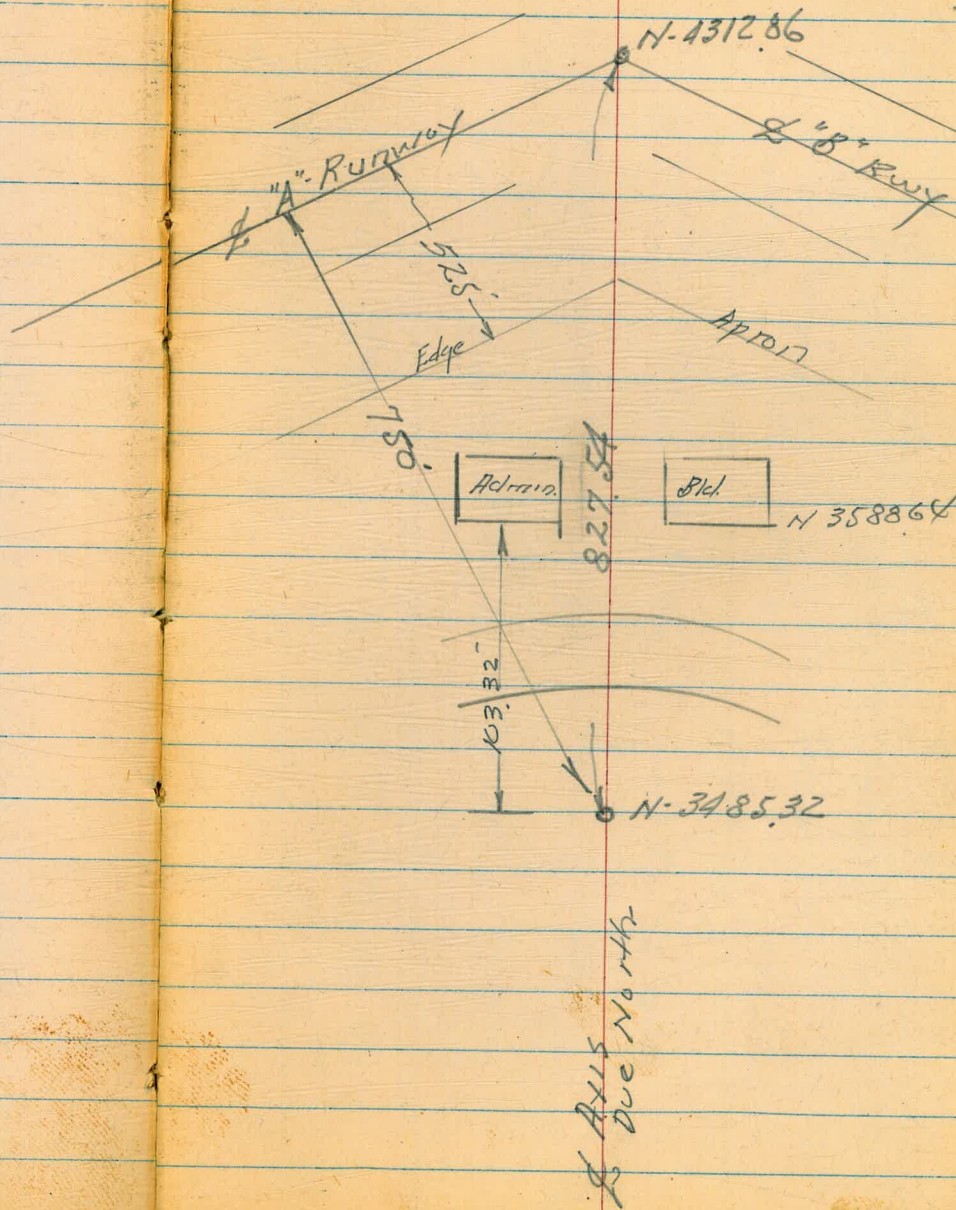 N-4312.86
℄ "A"-Runway
℄ "B" Rwy
525'
Edge
Apron
750'
Admin.
827.54
Bld.
N 3588.64
103.32'
N-3485.32
℄ Axis
Due North